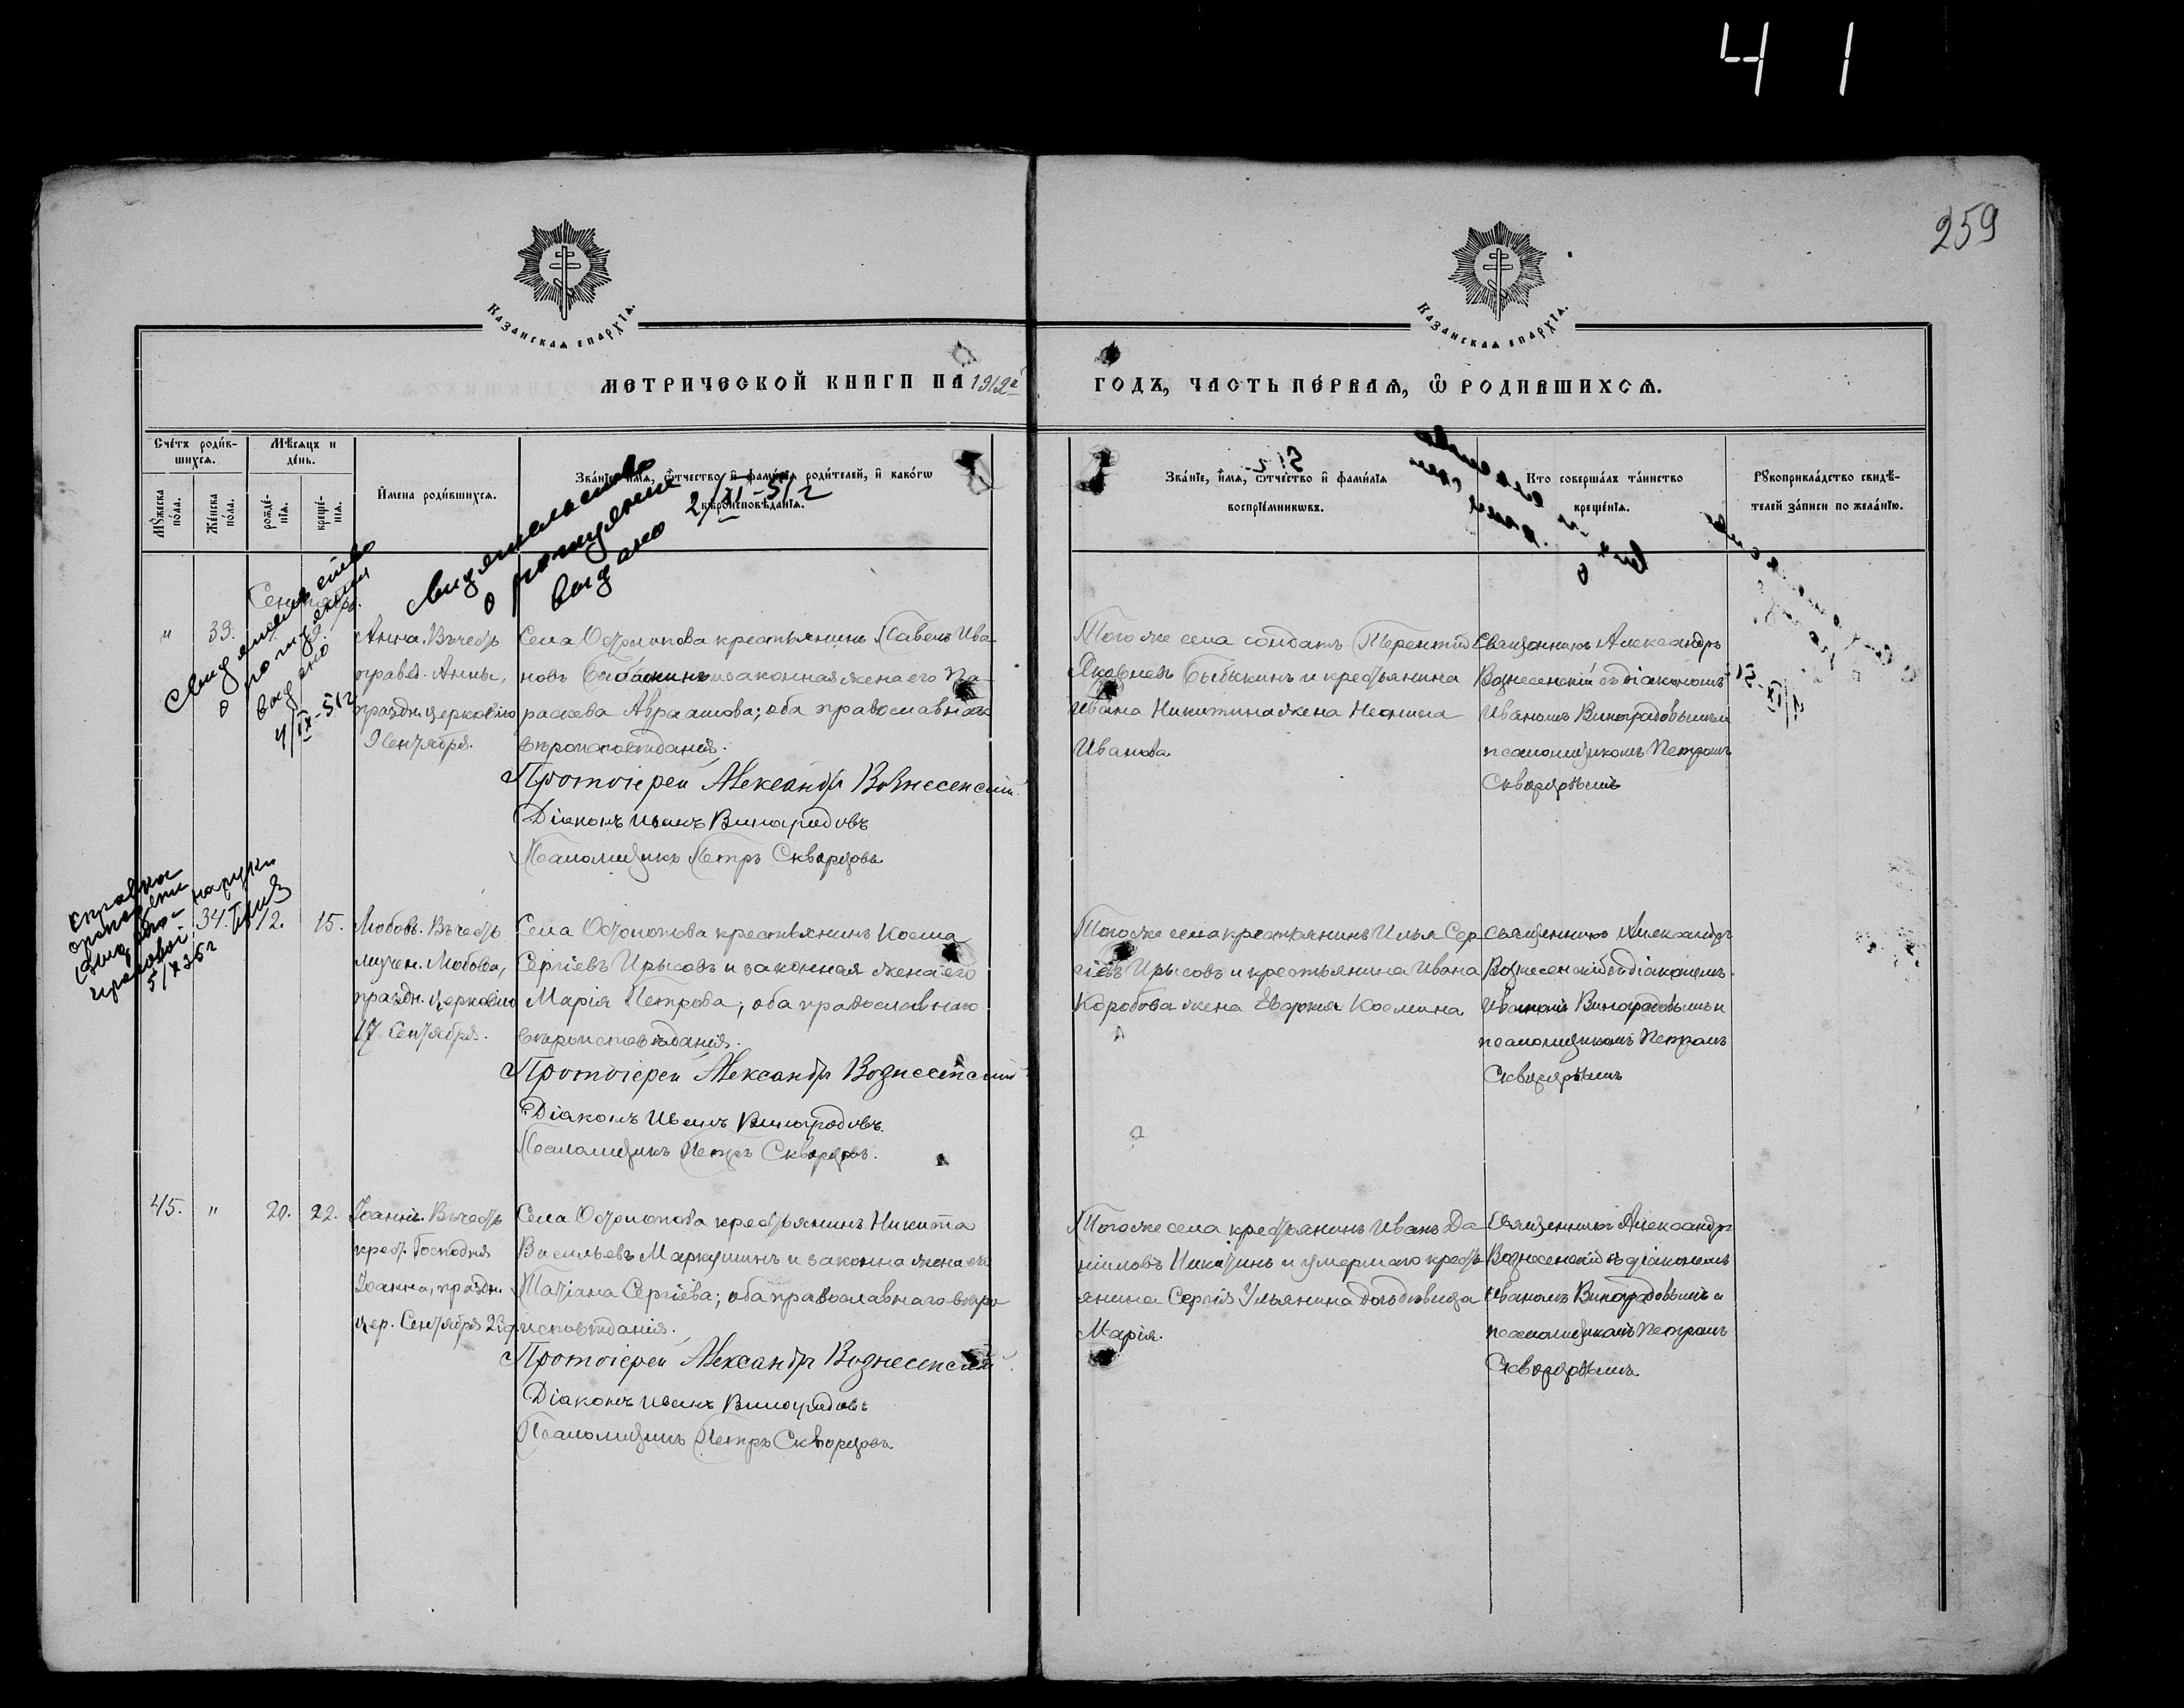 41
259
Казанская епархїѧ.
Казанская епархїѧ.
МЕТРИЧЕСКОЙ КНИГИ НА 1912й
ГОДЪ, ЧАСТЬ ПЕ́РВАѦ, Ѿ РОДИВШИХСѦ.
Сче́тъ роди́в-
шихсѧ.
Мѣ́сѧцъ и
де́нь.
Мꙋ́жеска
по́ла.
Же́нска
по́ла.
рожде́-
нїѧ.
креще́-
нїѧ.
И҆мена роди́вшихсѧ.
Зва́нїе, и҆́мѧ, ѻ҆́тчество и҆ фами́лїѧ роди́телей, и҆ како́гѡ
вѣроисповѣ́данїѧ.
Зва́нїе, и҆́мѧ, ѻ҆́тчество и҆ фами́лїѧ
воспрїе́мникѡвъ.
Кто соверша́лъ та́инство
креще́нїѧ.
Рꙋкоприкла́дство свидѣ́-
телей за́писи по жела́нїю.
свидетельство
о рождении
выдано 2/XI-51г
свидетельство
о рождении
выдано
4/IX-51г
Сентябрь.
" 33. 9.
Анна. Въ честь
правед. Анны,
праздн. церковію
9 Сентября.
Села Остолопова крестьянинъ Павелъ Ива
новъ Бабыкинъ и законная жена его Па-
раскева Авраамова; оба православнаго
вѣроисповѣданія.
Протоіерей Александръ Вознесенскій
Діаконъ Иванъ Виноградовъ
Псаломщикъ Петръ Скворцовъ
Того же села солдатъ Терентій
Яковлевъ Бабыкинъ и крестьянина
Ивана Никитина жена Неонила
Иванова
Священникъ Александръ
Вознесенскій съ діакономъ
Иваномъ Виноградовымъ и
псаломщикомъ Петромъ
Скворцовымъ
справка
выдана
5/X 35г
34. 12. 15.
Любовь. Въ честь
мучен. Любови,
праздн. церковію
17 Сентября.
Села Остолопова крестьянинъ Косма
Сергіевъ Ирысовъ и законная жена его
Марія Петрова; оба православнаго
вѣроисповѣданія.
Протоіерей Александръ Вознесенскій
Діаконъ Иванъ Виноградовъ.
Псаломщикъ Петръ Скворцовъ.
Того же села крестьянинъ Илья Сер-
гіевъ Ирысовъ и крестьянина Ивана
Коробова жена Евдокія Космина
Священникъ Александръ
Вознесенскій съ діакономъ
Иваномъ Виноградовымъ и
псаломщикомъ Петромъ
Скворцовымъ
45. " 20. 22.
Іоаннъ. Въ честь
крест. Господня
Іоанна, праздн.
цер. Сентября 23 д.
Села Остолопова крестьянинъ Никита
Васильевъ Маркушинъ и законна жена его
Татіана Сергіева; оба православнаго вѣро
исповѣданія.
Протоіерей Александръ Вознесенскій.
Діаконъ Иванъ Виноградовъ
Псаломщикъ Петръ Скворцовъ
Того же села крестьянинъ Иванъ Да-
ниловъ Никитинъ и умершаго кресть
янина Сергія Ульянина дочь дѣвица
Марія.
Священникъ Александръ
Вознесенскій съ діакономъ
Иваномъ Виноградовымъ и
псаломщикомъ Петромъ
Скворцовымъ